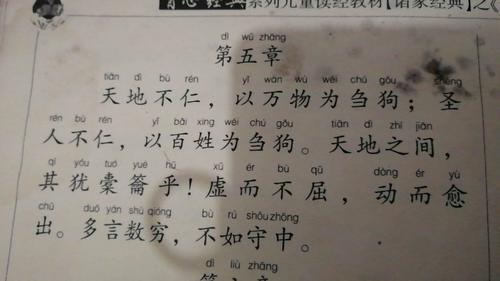 育心经典系列儿童读经教材【诸家经典】之《
dì wǔ zhāng
第五章
tiān dì bù rén yǐ wàn wù wéi chú gǒu shèng
天地不仁，以万物为刍狗；圣
rén bù rén yǐ bǎi xìng wéi chú gǒu tiān dì zhī jiān
人不仁，以百姓为刍狗。天地之间，
qí yóu tuó yuè hū xū ér bù qū dòng ér yù
其犹橐籥乎！虚而不屈，动而愈
chū duō yán shù qióng bù rú shǒu zhōng
出。多言数穷，不如守中。
dì liù zhāng
第六章